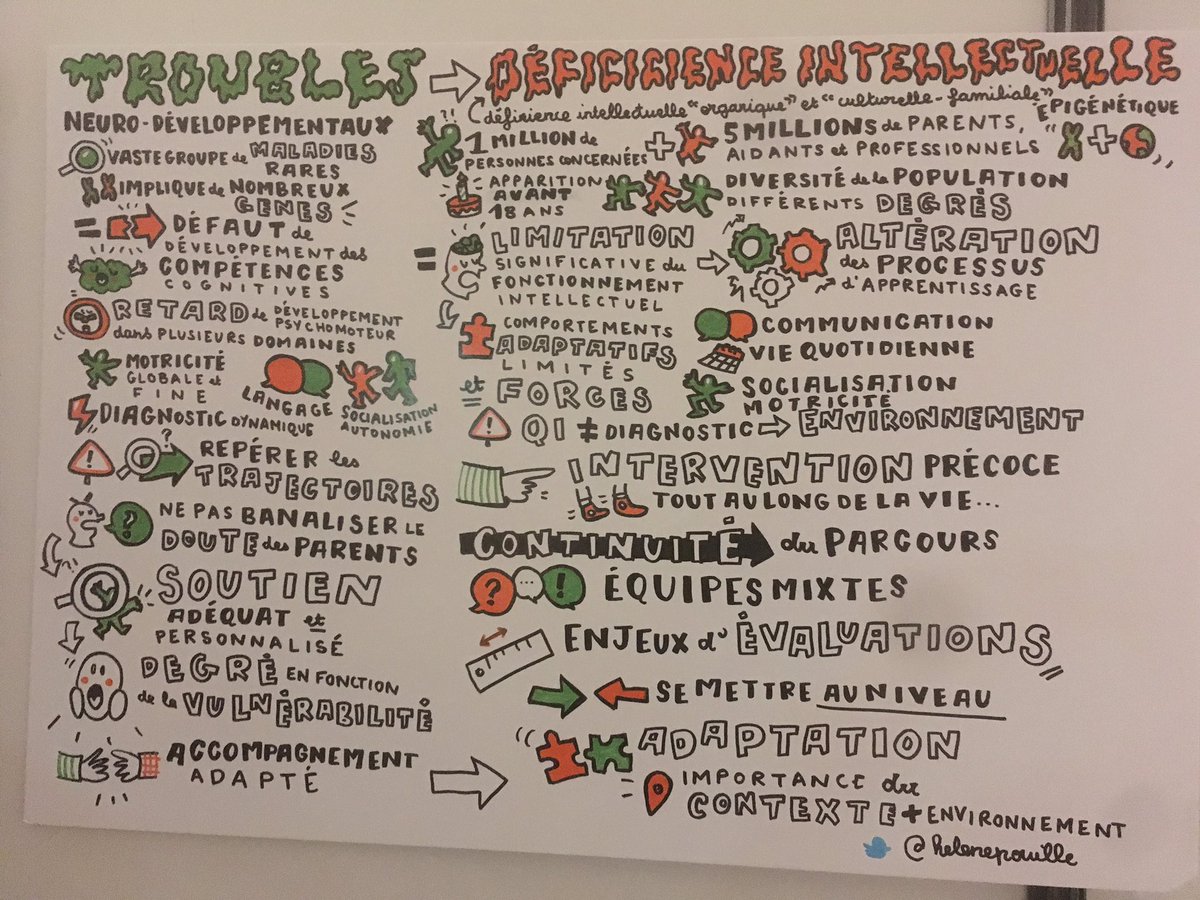 TROUBLES
NEURO-DÉVELOPPEMENTAUX
VASTE GROUPE de MALADIES
RARES
IMPLIQUE de NOMBREUX
GÈNES
= DÉFAUT de
DÉVELOPPEMENT des
COMPÉTENCES
COGNITIVES
RETARD de DÉVELOPPEMENT
PSYCHOMOTEUR
dans PLUSIEURS DOMAINES
MOTRICITÉ
GLOBALE et
FINE
LANGAGE
SOCIALISATION
AUTONOMIE
DIAGNOSTIC DYNAMIQUE
! ? REPÉRER les
TRAJECTOIRES
? NE PAS BANALISER LE
DOUTE des PARENTS
SOUTIEN
ADÉQUAT et
PERSONNALISÉ
DEGRÉ EN FONCTION
de la VULNÉRABILITÉ
ACCOMPAGNEMENT
ADAPTÉ
DÉFICICIENCE INTELLECTUELLE
(défisience intellectuelle "organique" et "culturelle-familiale"
?! 1 MILLION de
PERSONNES CONCERNÉES
+ 5 MILLIONS de PARENTS,
AIDANTS et PROFESSIONNELS
ÉPIGÉNÉTIQUE
" + "
APPARITION
AVANT
18 ANS
DIVERSITÉ de la POPULATION
DIFFÉRENTS DEGRÉS
= LIMITATION
SIGNIFICATIVE du
FONCTIONNEMENT
INTELLECTUEL
ALTÉRATION
des PROCESSUS
d'APPRENTISSAGE
COMPORTEMENTS
ADAPTATIFS
LIMITÉS
COMMUNICATION
VIE QUOTIDIENNE
et FORCES
SOCIALISATION
MOTRICITÉ
! QI ≠ DIAGNOSTIC ⇒ ENVIRONNEMENT
INTERVENTION PRÉCOCE
TOUT AU LONG DE LA VIE...
CONTINUITÉ du PARCOURS
? ... ! ÉQUIPES MIXTES
ENJEUX d'ÉVALUATIONS
SE METTRE AU NIVEAU
ADAPTATION
IMPORTANCE du
CONTEXTE + ENVIRONNEMENT
@helenepouille